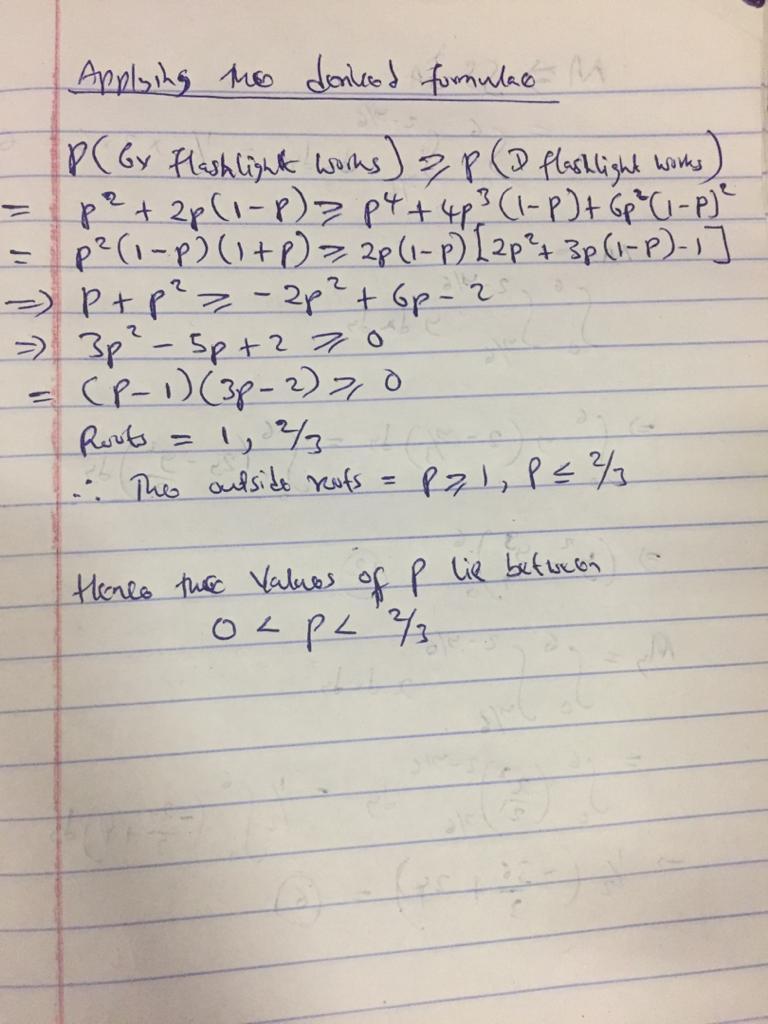 Applying the derived formulae
P(Gr flashlight works) ≥ P(D flashlight works)
= p² + 2p(1-p) ≥ p⁴ + 4p³(1-p) + 6p²(1-p)²
= p²(1-p)(1+p) ≥ 2p(1-p)[2p² + 3p(1-p) - 1]
⇒ p + p² ≥ -2p² + 6p - 2
⇒ 3p² - 5p + 2 ≥ 0
= (p-1)(3p-2) ≥ 0
Roots = 1, 2/3
∴ The outside roots = p ≥ 1, p ≤ 2/3
Hence the values of p lie between
0 < p < 2/3